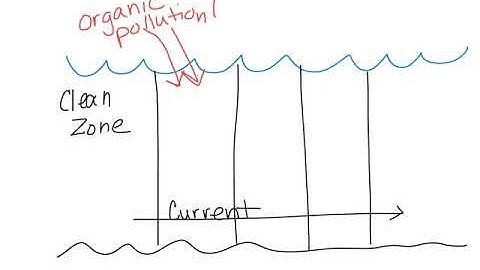 organic
pollution
Clean
Zone
Current